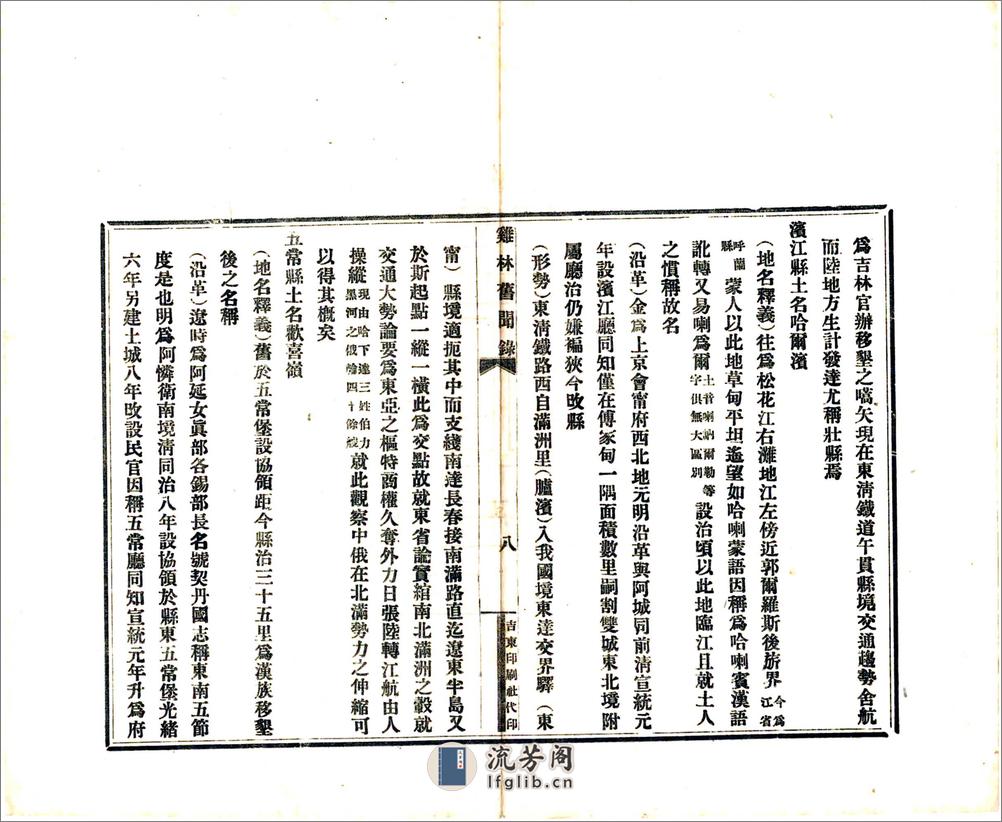 爲吉林官辦移墾之嚆矢現在東淸鐵道午貫縣境交通趨勢舍航
而陸地方生計發達尤稱壯縣焉
濱江縣土名哈爾濱
(地名釋義)往爲松花江右灘地江左傍近郭爾羅斯後旂界今爲江省
呼蘭縣蒙人以此地草甸平坦遙望如哈喇蒙語因稱爲哈喇賓漢語
訛轉又易喇爲爾土音喇納爾勒等字俱無大區別設治頃以此地臨江且就土人
之慣稱故名
(沿革)金爲上京會甯府西北地元明沿革與阿城同前淸宣統元
年設濱江廳同知僅在傅家甸一隅面積數里嗣割雙城東北境附
屬廳治仍嫌褊狹今改縣
(形勢)東淸鐵路西自滿洲里(臚濱)入我國境東達交界驛(東
雞林舊聞錄
八
吉東印刷社代印
甯)縣境適扼其中而支綫南達長春接南滿路直迄遼東半島又
於斯起點一縱一橫此爲交點故就東省論實綰南北滿洲之轂就
交通大勢論要爲東亞之樞特商權久奪外力日張陸轉江航由人
操縱現由哈下達三姓伯力黑河之俄輪四十餘艘就此觀察中俄在北滿勢力之伸縮可
以得其槪矣
五常縣土名歡喜嶺
(地名釋義)舊於五常堡設協領距今縣治三十五里爲漢族移墾
後之名稱
(沿革)遼時爲阿延女眞部各錫部長名號契丹國志稱東南五節
度是也明爲阿憐衛南境淸同治八年設協領於縣東五常堡光緖
六年另建土城八年改設民官因稱五常廳同知宣統元年升爲府
流芳阁
lfglib.cn